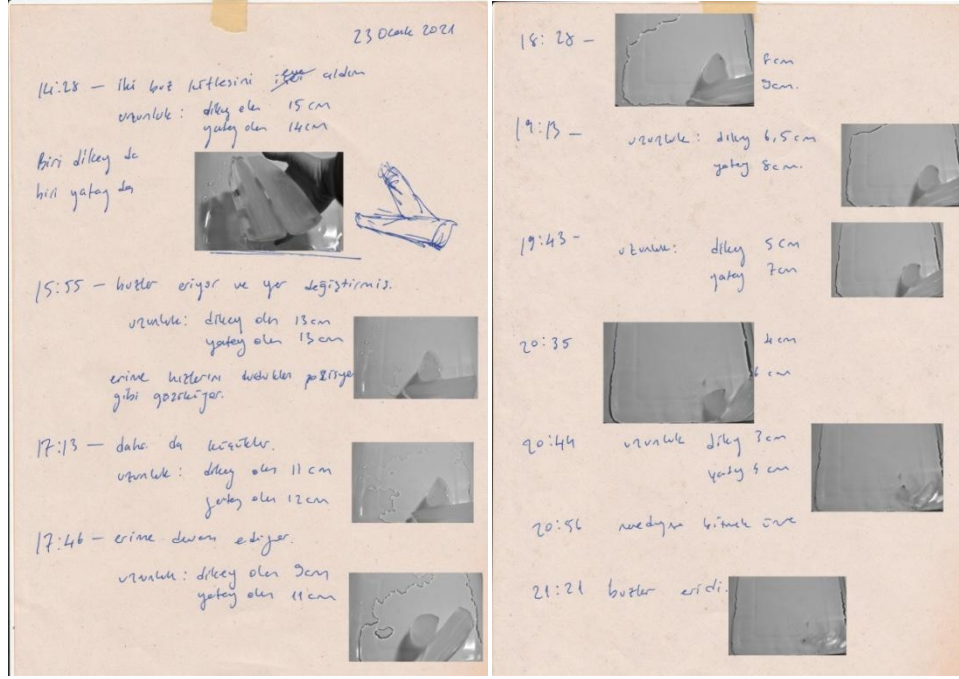 23 Ocak 2021
14:28 — iki buz kütlesini aldım
uzunluk: dikey olan 15 cm
yatay olan 14 cm
Biri dikey de
biri yatay da
15:55 — buzlar eriyor ve yer değiştirmiş.
uzunluk: dikey olan 13 cm
yatay olan 13 cm
erime hızlarını
gibi gözüküyor.
17:13 — daha da küçükler.
uzunluk: dikey olan 11 cm
yatay olan 12 cm
17:46 — erime devam ediyor.
uzunluk: dikey olan 9cm
yatay olan 11cm
18:28 —
8cm
9cm.
19:13 — uzunluk: dikey 6,5cm
yatay 8cm.
19:43 — uzunluk: dikey 5cm
yatay 7cm
20:35 4cm
cm
20:44 uzunluk dikey 3cm
yatay cm
20:56 bitmek
21:21 buzlar eridi.